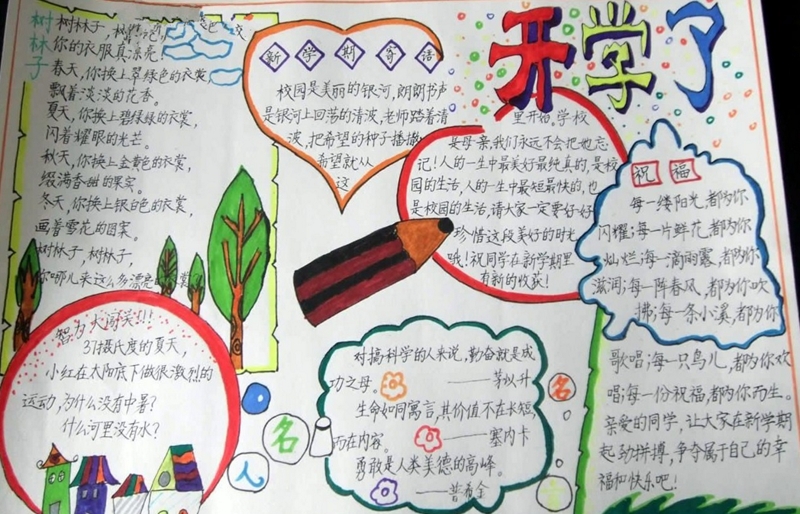 开学了
树林子
树林子,树林子,
你的衣服真漂亮!
春天,你换上翠绿色的衣裳,
飘着淡淡的花香。
夏天,你换上碧绿的衣裳,
闪着耀眼的光芒。
秋天,你换上金黄色的衣裳,
缀满香甜的果实。
冬天,你换上银白色的衣裳,
画着雪花的图案。
树林子,树林子,
你哪儿来这么多漂亮
新学期寄语
校园是美丽的银河,朗朗书声
是银河上回荡的清波,老师踏着清
波,把希望的种子播撒
希望就从
这
里开始,学校
是母亲,我们永远不会把他忘
记!人的一生中最美好最纯真的,是校
园的生活,人的一生中最短最快的,也
是校园的生活,请大家一定要好好
珍惜这段美好的时光
哦!祝同学在新学期里
有新的收获!
祝福
每一缕阳光,都为你
闪耀;每一片鲜花,都为你
灿烂;每一滴雨露,都为你
滋润;每一阵春风,都为你吹
拂;每一条小溪,都为你
歌唱;每一只鸟儿,都为你欢
唱;每一份祝福,都为你而生。
亲爱的同学,让大家在新学期
起劲拼搏,争夺属于自己的幸
福和快乐吧!
智力大闯关!!!
37摄氏度的夏天,
小红在太阳底下做很激烈的
运动,为什么没有中暑?
什么河里没有水?
人名
名言
对搞科学的人来说,勤奋就是成
功之母。——茅以升
生命如同寓言,其价值不在长短,
而在内容。——塞内卡
勇敢是人类美德的高峰。
——普希金